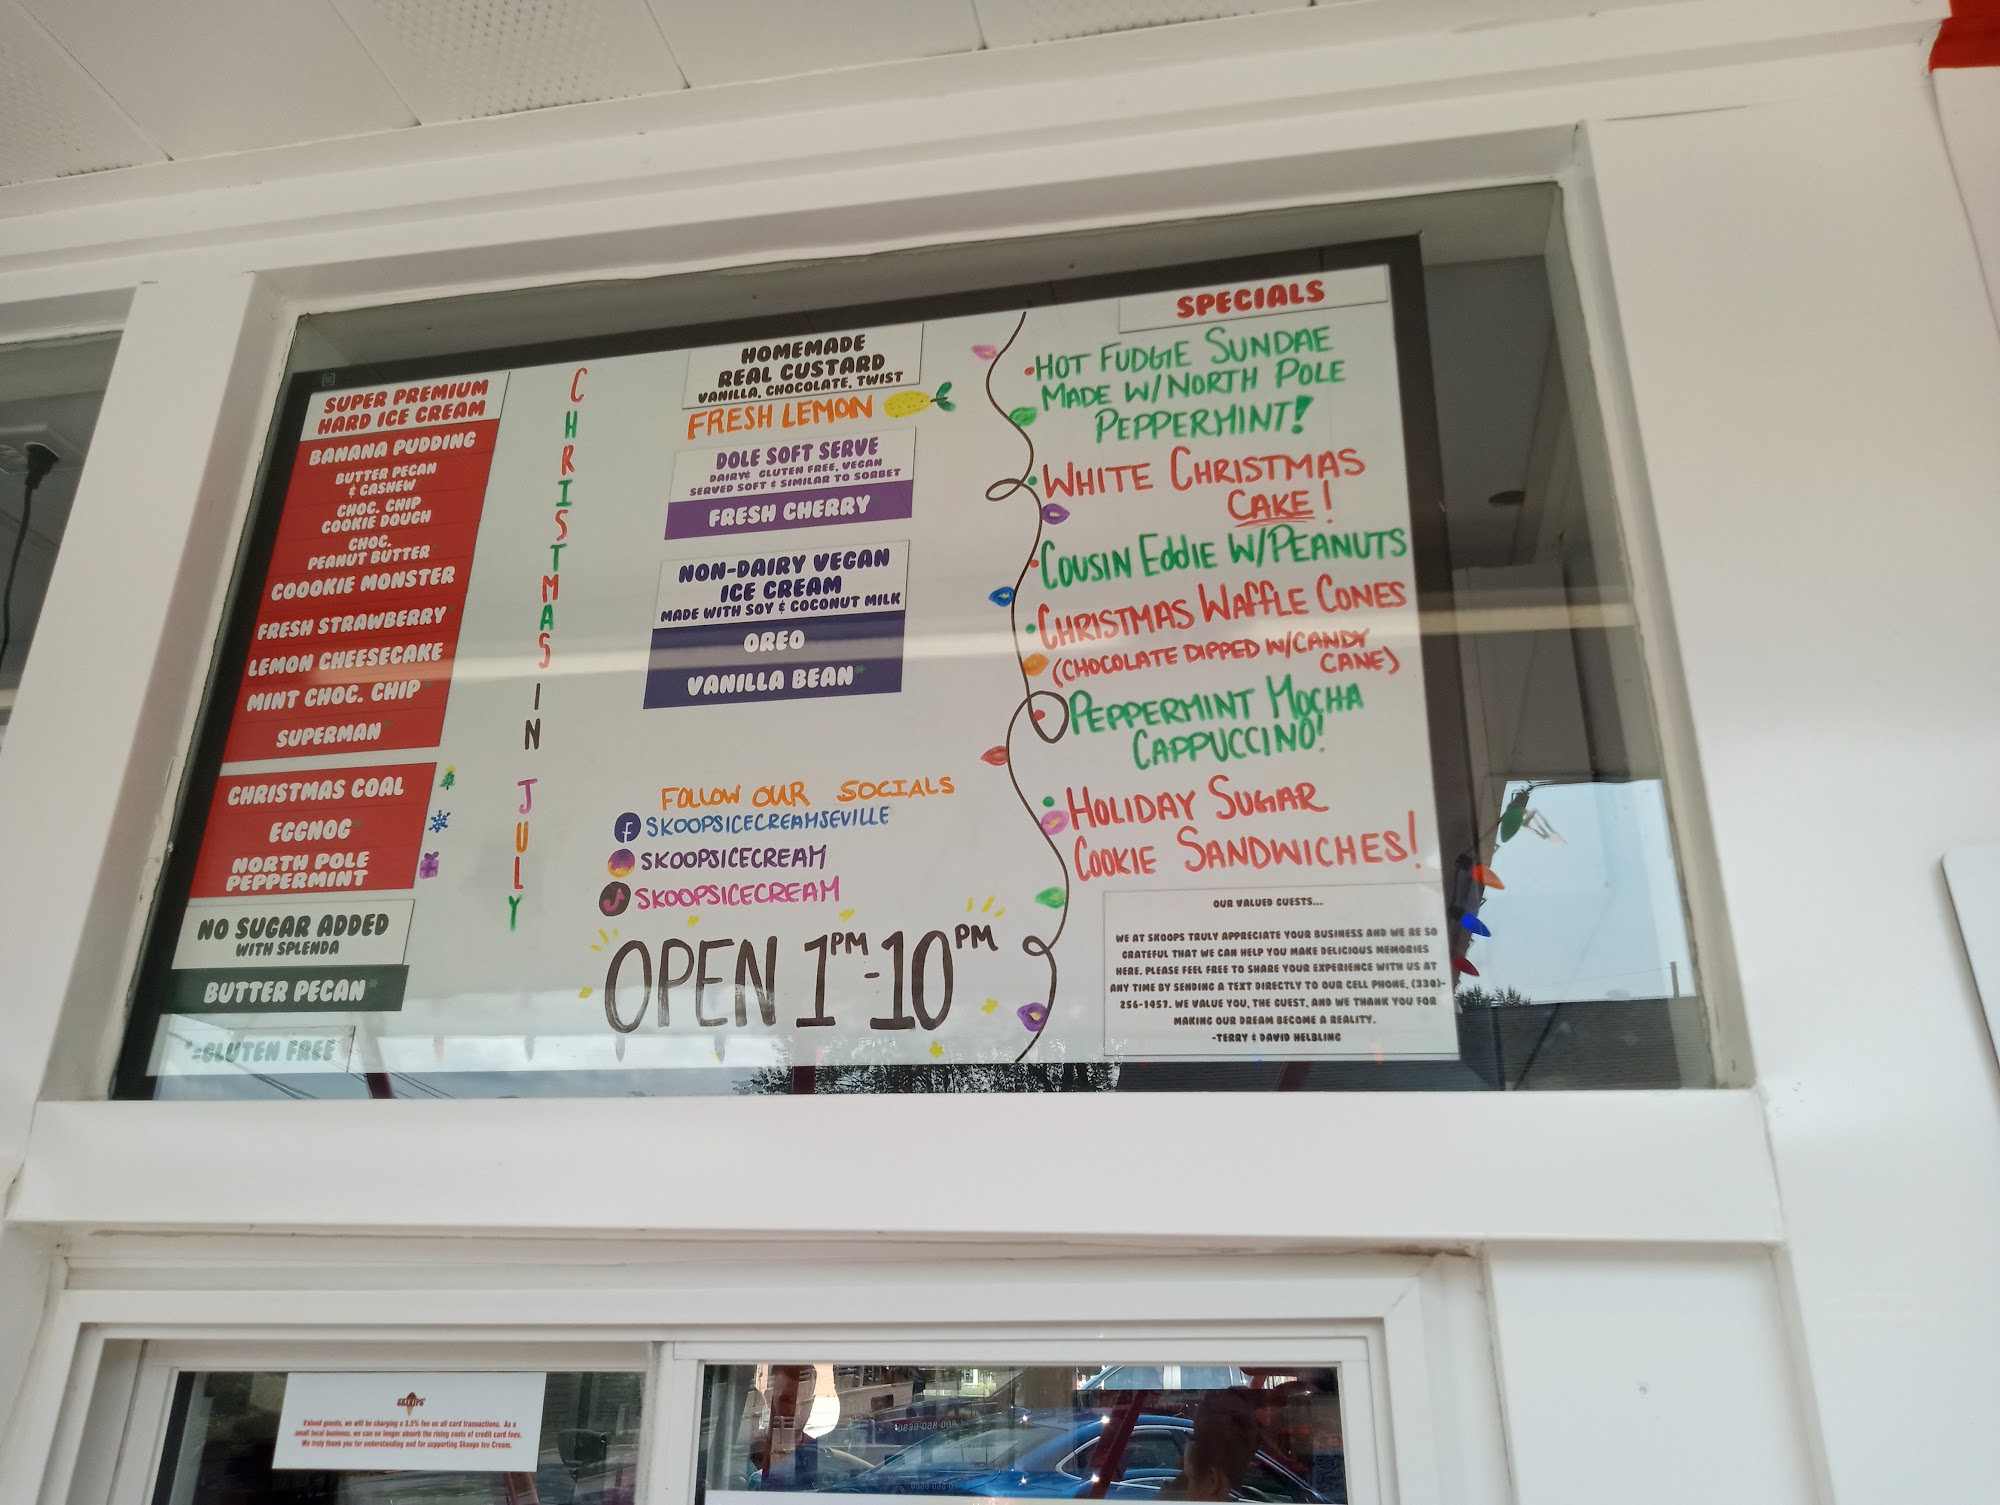 SUPER PREMIUM
HARD ICE CREAM
BANANA PUDDING
BUTTER PECAN
& CASHEW
CHOC. CHIP
COOKIE DOUGH
CHOC.
PEANUT BUTTER
COOOKIE MONSTER
FRESH STRAWBERRY*
LEMON CHEESECAKE
MINT CHOC. CHIP*
SUPERMAN*
CHRISTMAS COAL
EGGNOG*
NORTH POLE
PEPPERMINT
NO SUGAR ADDED
WITH SPLENDA
BUTTER PECAN*
*=GLUTEN FREE
CHRISTMAS IN JULY
HOMEMADE
REAL CUSTARD
VANILLA, CHOCOLATE, TWIST
FRESH LEMON
DOLE SOFT SERVE
DAIRY & GLUTEN FREE, VEGAN
SERVED SOFT & SIMILAR TO SORBET
FRESH CHERRY*
NON-DAIRY VEGAN
ICE CREAM
MADE WITH SOY & COCONUT MILK
OREO
VANILLA BEAN*
FOLLOW OUR SOCIALS
SKOOPSICECREAMSEVILLE
SKOOPSICECREAM
SKOOPSICECREAM
OPEN 1PM-10PM
SPECIALS
•HOT FUDGE SUNDAE
MADE W/NORTH POLE
PEPPERMINT!
•WHITE CHRISTMAS
CAKE!
•COUSIN EDDIE W/PEANUTS
•CHRISTMAS WAFFLE CONES
(CHOCOLATE DIPPED W/CANDY
CANE)
•PEPPERMINT MOCHA
CAPPUCCINO!
•HOLIDAY SUGAR
COOKIE SANDWICHES!
OUR VALUED GUESTS...
WE AT SKOOPS TRULY APPRECIATE YOUR BUSINESS AND WE RE SO
GRATEFUL THAT WE CAN HELP YOU MAKE DELICIOUS MEMORIES
HERE. PLEASE FEEL FREE TO SHARE YOUR EXPERIENCE WITH US AT
ANY TIME BY SENDING A TEXT DIRECTLY TO OUR CELL PHONE, (330)-
256-1457. WE VALUE YOU, THE GUEST, AND WE THANK YOU FOR
MAKING OUR DREAM BECOME A REALITY.
-TERRY & DAVID HELBLING
SKOOPS
Valued guests, we will be charging a 3.5% fee on all card transactions. As a
small local business, we can no longer absorb the rising costs of credit card fees.
We truly thank you for understanding and for supporting Skoops Ice Cream.